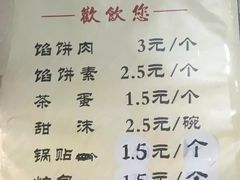 歡飲您
馅饼肉 3元/个
馅饼素 2.5元/个
茶蛋 1.5元/个
甜沫 2.5元/碗
锅贴 1.5元/个